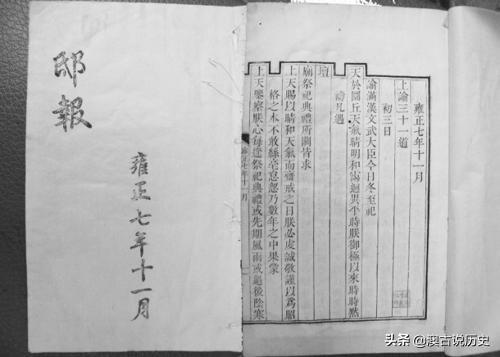 邸報
雍正七年十一月
雍正七年十一月
上諭三十一道
初三日
諭滿漢文武大臣今日冬至祀
天於圜丘天氣晴明和煦迥異平時朕御極以來時時黙
禱凡遇
壇
廟祭祀典禮所關皆求
上天賜以晴和天氣而齋戒之日朕必虔誠敬謹以為昭
格之本不敢絲毫怠忽乃數年之中果蒙
上天鑒察朕心每逢祭祀典禮或先期風雨或過後陰寒
头条 @澳古说历史